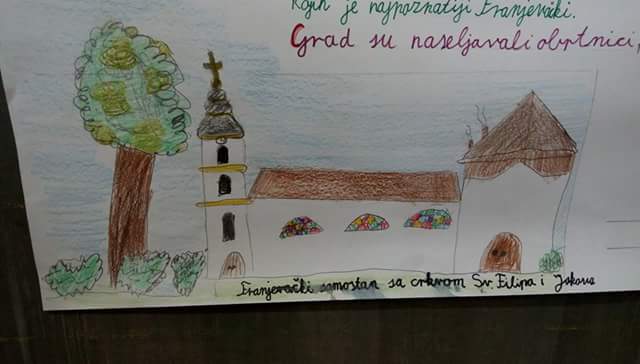 kojih je najpoznatiji Franjevački.
Grad su naseljavali obrtnici,
Franjevački samostan sa crkvom Sv. Filipa i Jakova